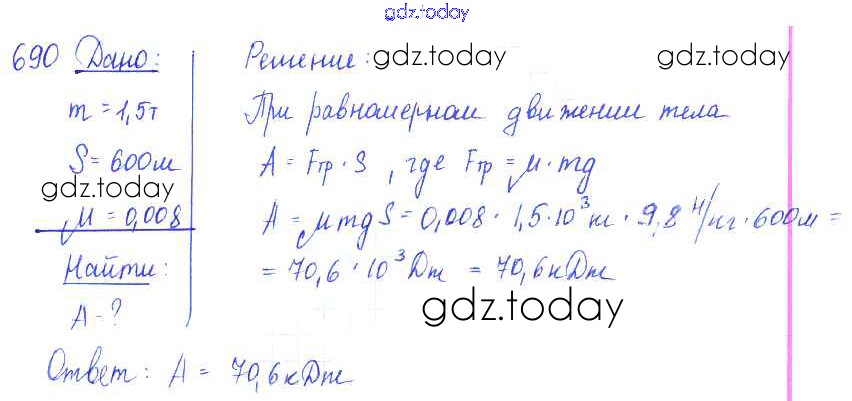 gdz.today
690 Дано:
m = 1,5т
S = 600м
gdz.today
μ = 0,008
Найти:
A - ?
Решение: gdz.today gdz.today
При равномерном движении тела
A = Fтр · S , где Fтр = μ · mg
A = μmgS = 0,008 · 1,5·10³кг · 9,8 Н/кг · 600м =
= 70,6 · 10³Дж = 70,6кДж
gdz.today
Ответ: A = 70,6кДж